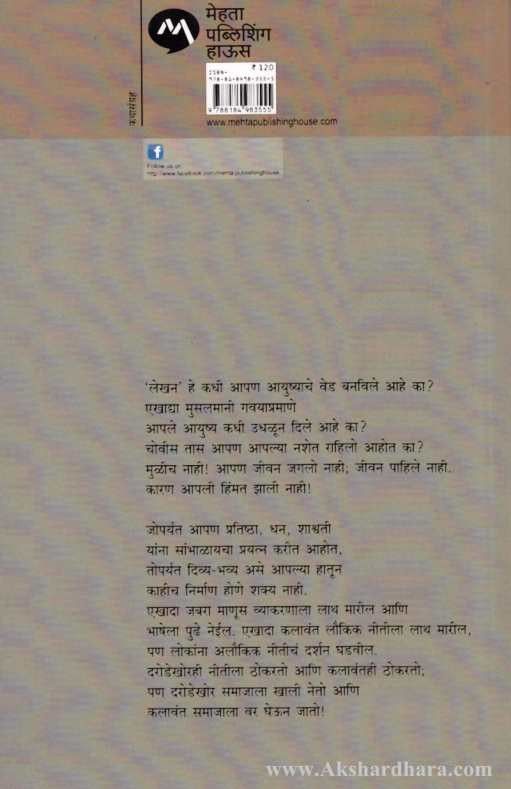 मेहता
पब्लिशिंग
हाऊस
₹ 120
ISBN-
9 788184 983555
कथासंग्रह
www.mehtapublishinghouse.com
Follow us on
http://www.facebook.com/mehta.publishinghouse
'लेखन' हे कधी आपण आयुष्याचे वेड बनविले आहे का?
एखाद्या मुसलमानी गवयाप्रमाणे
आपले आयुष्य कधी उधळून दिले आहे का?
चोवीस तास आपण आपल्या नशेत राहिलो आहोत का?
मुळीच नाही! आपण जीवन जगलो नाही; जीवन पाहिले नाही.
कारण आपली हिंमत झाली नाही!
जोपर्यंत आपण प्रतिष्ठा, धन, शाश्वती
यांना सांभाळायचा प्रयत्न करीत आहोत,
तोपर्यंत दिव्य-भव्य असे आपल्या हातून
काहीच निर्माण होणे शक्य नाही.
एखादा जबरा माणूस व्याकरणाला लाथ मारील आणि
भाषेला पुढे नेईल. एखादा कलावंत लौकिक नीतीला लाथ मारील,
पण लोकांना अलौकिक नीतीचं दर्शन घडवील.
दरोडेखोरही नीतीला ठोकरतो आणि कलावंतही ठोकरतो;
पण दरोडेखोर समाजाला खाली नेतो आणि
कलावंत समाजाला वर घेऊन जातो!
www.Akshardhara.com